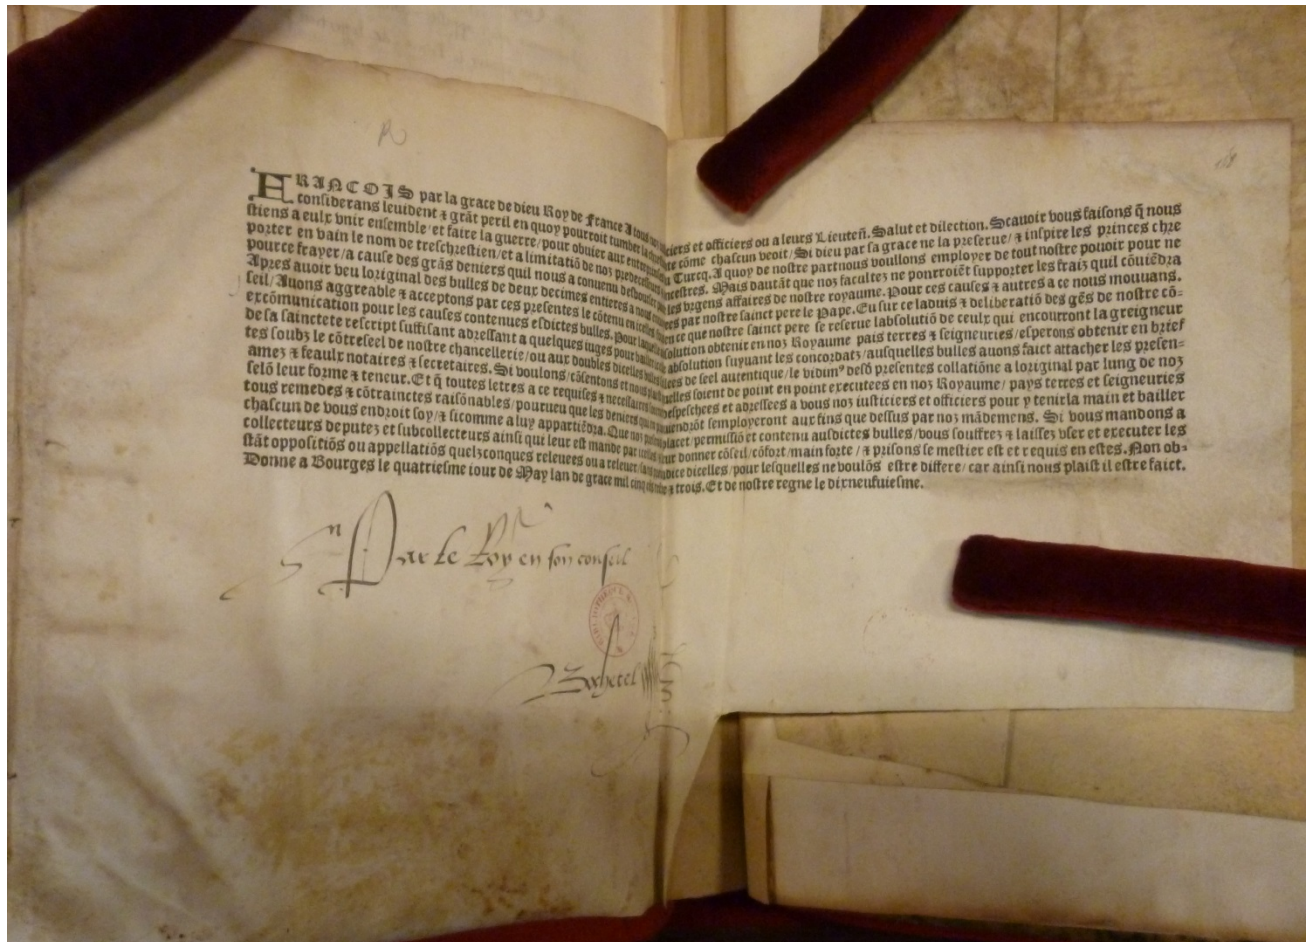 FRANCOIS par la grace de dieu Roy de france A tous noz iciers et officiers ou a leurs Lieuteñ. Salut et dilection. Scauoir vous faisons q̃ nous
considerans leuident ⁊ grãt peril en quoy pourroit tumber la cõme chascun veoit/ Si dieu par sa grace ne la preserue/ ⁊ inspire les princes chre
stiens a eulx vnir ensemble/ et faire la guerre/ pour obuier aux entreprinses du Turcq. A quoy de nostre part nous voullons employer de tout nostre pouoir pour ne
porter en vain le nom de treschrestien/ et a limitatiõ de noz predecesseurs ancestres. Mais dautãt que noz facultez ne porroiẽt supporter les fraiz quil cõuiẽdra
pource frayer/ a cause des grãs deniers quil nous a conuenu desbourser les vrgens affaires de nostre royaume. Pour ces causes ⁊ autres a ce nous mouuans.
Apres auoir veu loriginal des bulles de deux decimes entieres a nous par nostre sainct pere le Pape. Eu sur ce laduis ⁊ deliberatiõ des gẽs de nostre cõ-
seil/ Auons aggreable ⁊ acceptons par ces presentes le cõtenu en icelles en ce que nostre sainct pere se reserue labsolutiõ de ceulx qui encourront la greigneur
excõmunication pour les causes contenues esdictes bulles. Pour laquelle absolution obtenir en noz Royaume pais terres ⁊ seigneuries/ esperons obtenir en brief
de sa sainctete rescript suffisant adressant a quelques iuges pour bailler absolution suyuant les concordatz/ ausquelles bulles auons faict attacher les presen-
tes soubz le cõtreseel de nostre chancellerie/ ou aux doubles dicelles de seel autentique/ le vidimꝰ desd̃ presentes collatiõne a loriginal par lung de noz
amez ⁊ feaulx notaires ⁊ secretaires. Si voulons/ cõsentons et nous quelles soient de point en point executees en noz Royaume/ pays terres et seigneuries
selõ leur forme ⁊ teneur. Et q̃ toutes letres a ce requises ⁊ necessaires despeschees et adressees a vous noz iusticiers et officiers pour y tenir la main et bailler
tous remedes ⁊ cõtrainctes raisõnables/ pourueu que les deniers qui en viendrõt semployeront aux fins que dessus par noz mãdemens. Si vous mandons a
chascun de vous endroit soy/ ⁊ sicomme a luy appartiẽdra. Que noz placet/ permissiõ et contenu ausdictes bulles/ vous souffrez ⁊ laissez vser et executer les
collecteurs deputez et subcollecteurs ainsi qui leur est mande par icelles leur donner cõseil/ cõfort/ main forte/ ⁊ prisons se mestier est et requis en estes. Non ob-
stãt oppositiõs ou appellatiõs quelzconques releuees ou a releuer/ dicelles/ pour lesquelles ne voulõs estre differe/ car ainsi nous plaist il estre faict.
Donne a Bourges le quatriesme iour de May lan de grace mil cinq cẽs trẽte ⁊ trois. Et de nostre regne le dixneufuiesme.
Par le Roy en son conseil
Bochetel